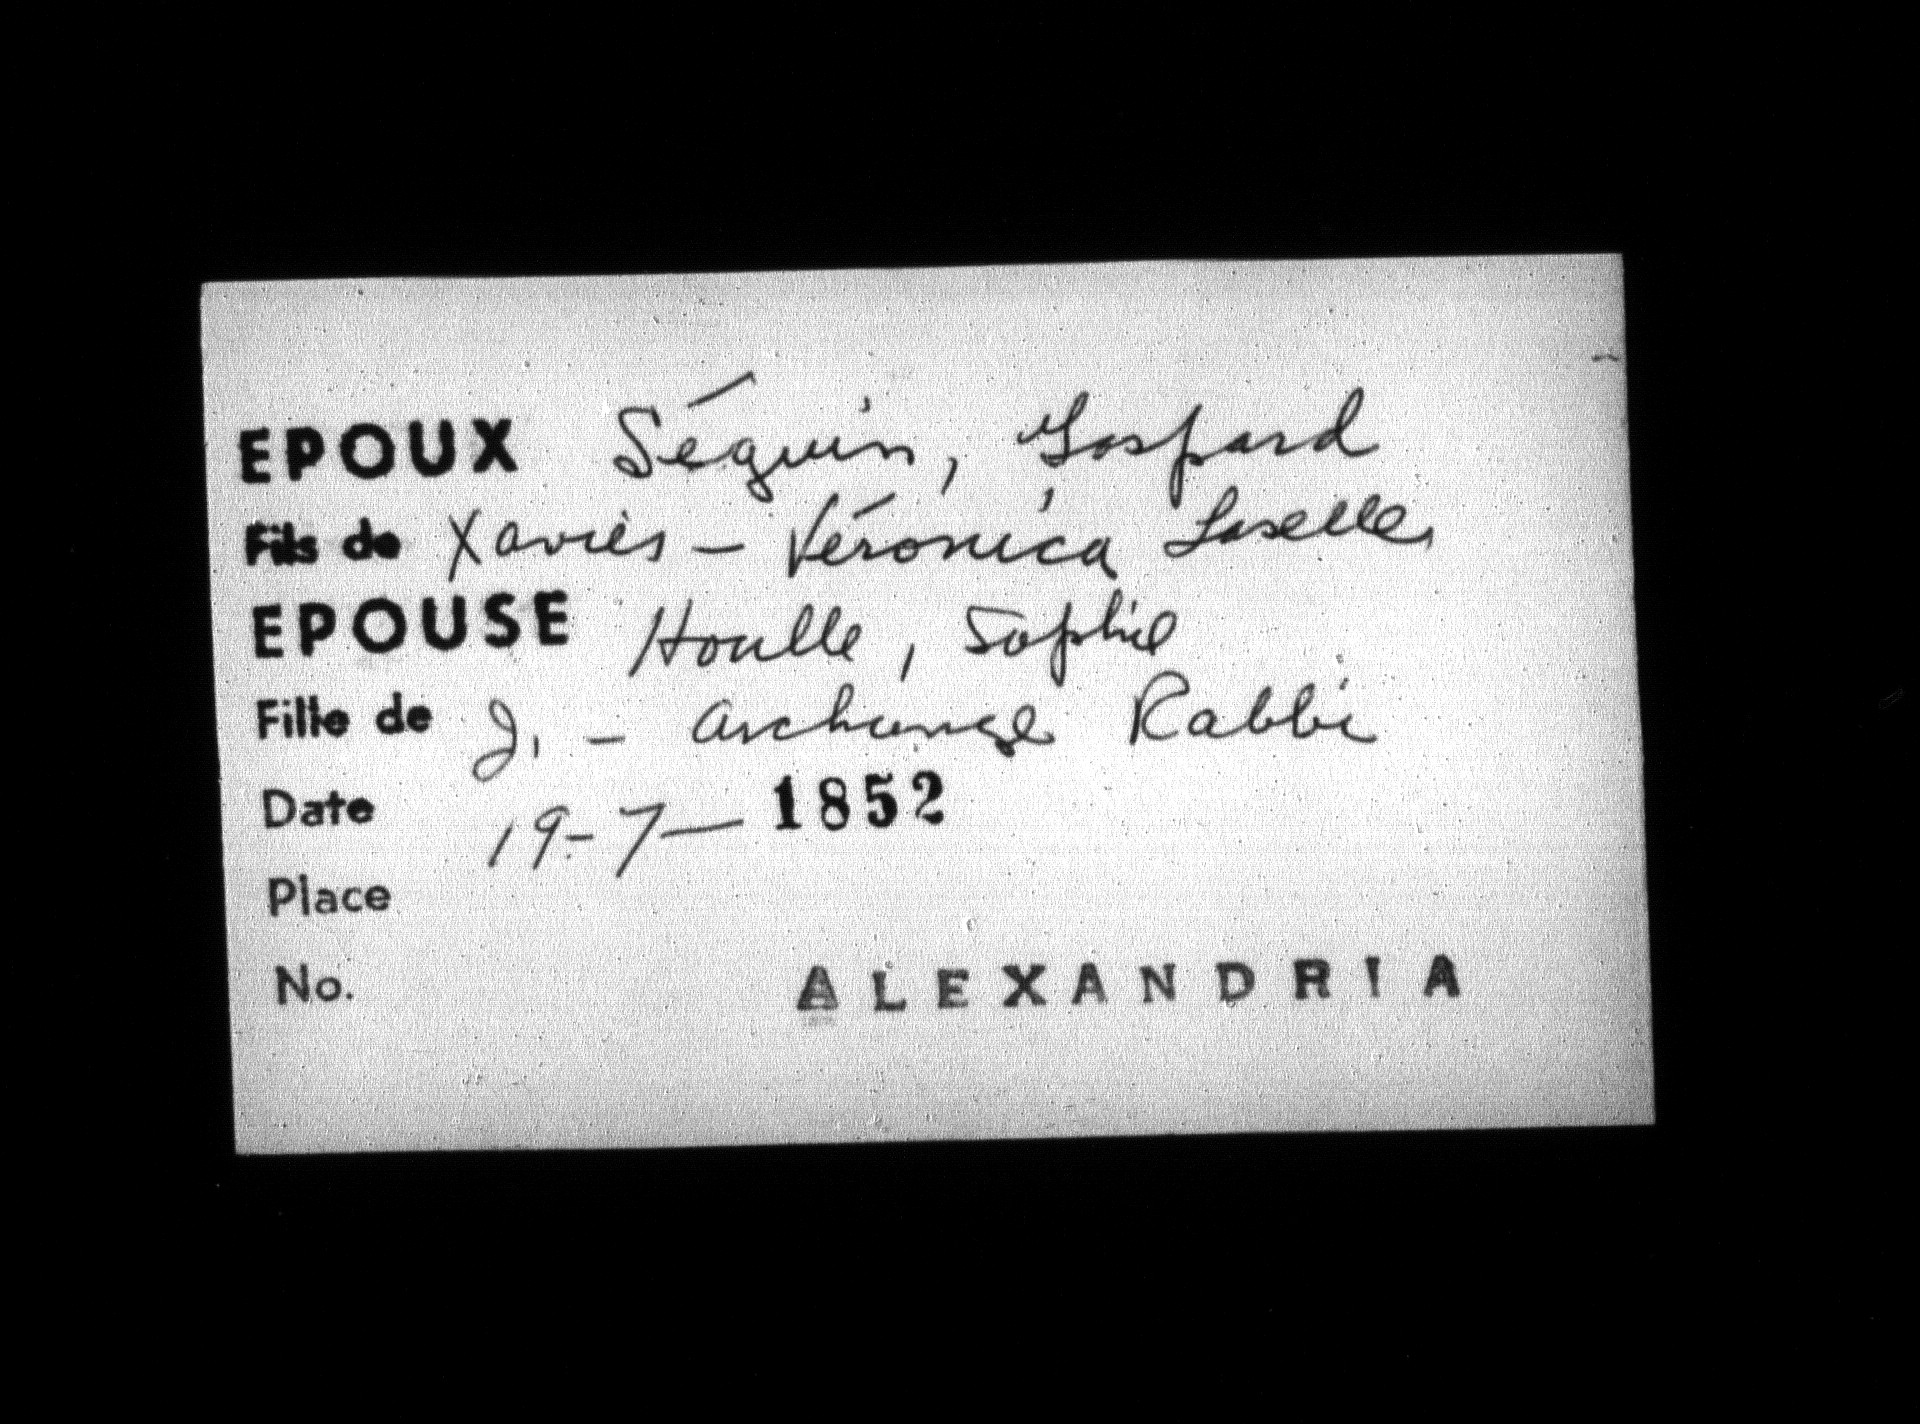 EPOUX Séguin, Gaspard
Fils de Xavier - Véronica Laselle,
EPOUSE Houlle, Sophie
Fille de J. - Archange Rabbi
Date 19-7-1852
Place
No. ALEXANDRIA